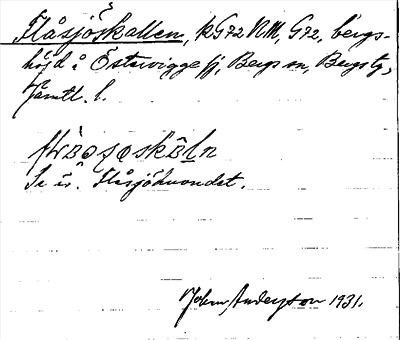 Flåsjöskallen, kG72 NM, G72, bergs-
höjd å Östervigge fj, Bergs sn, Bergs tg,
Jämtl. l.
Se är. Flåsjöhuvudet.
John Anderson 1931.